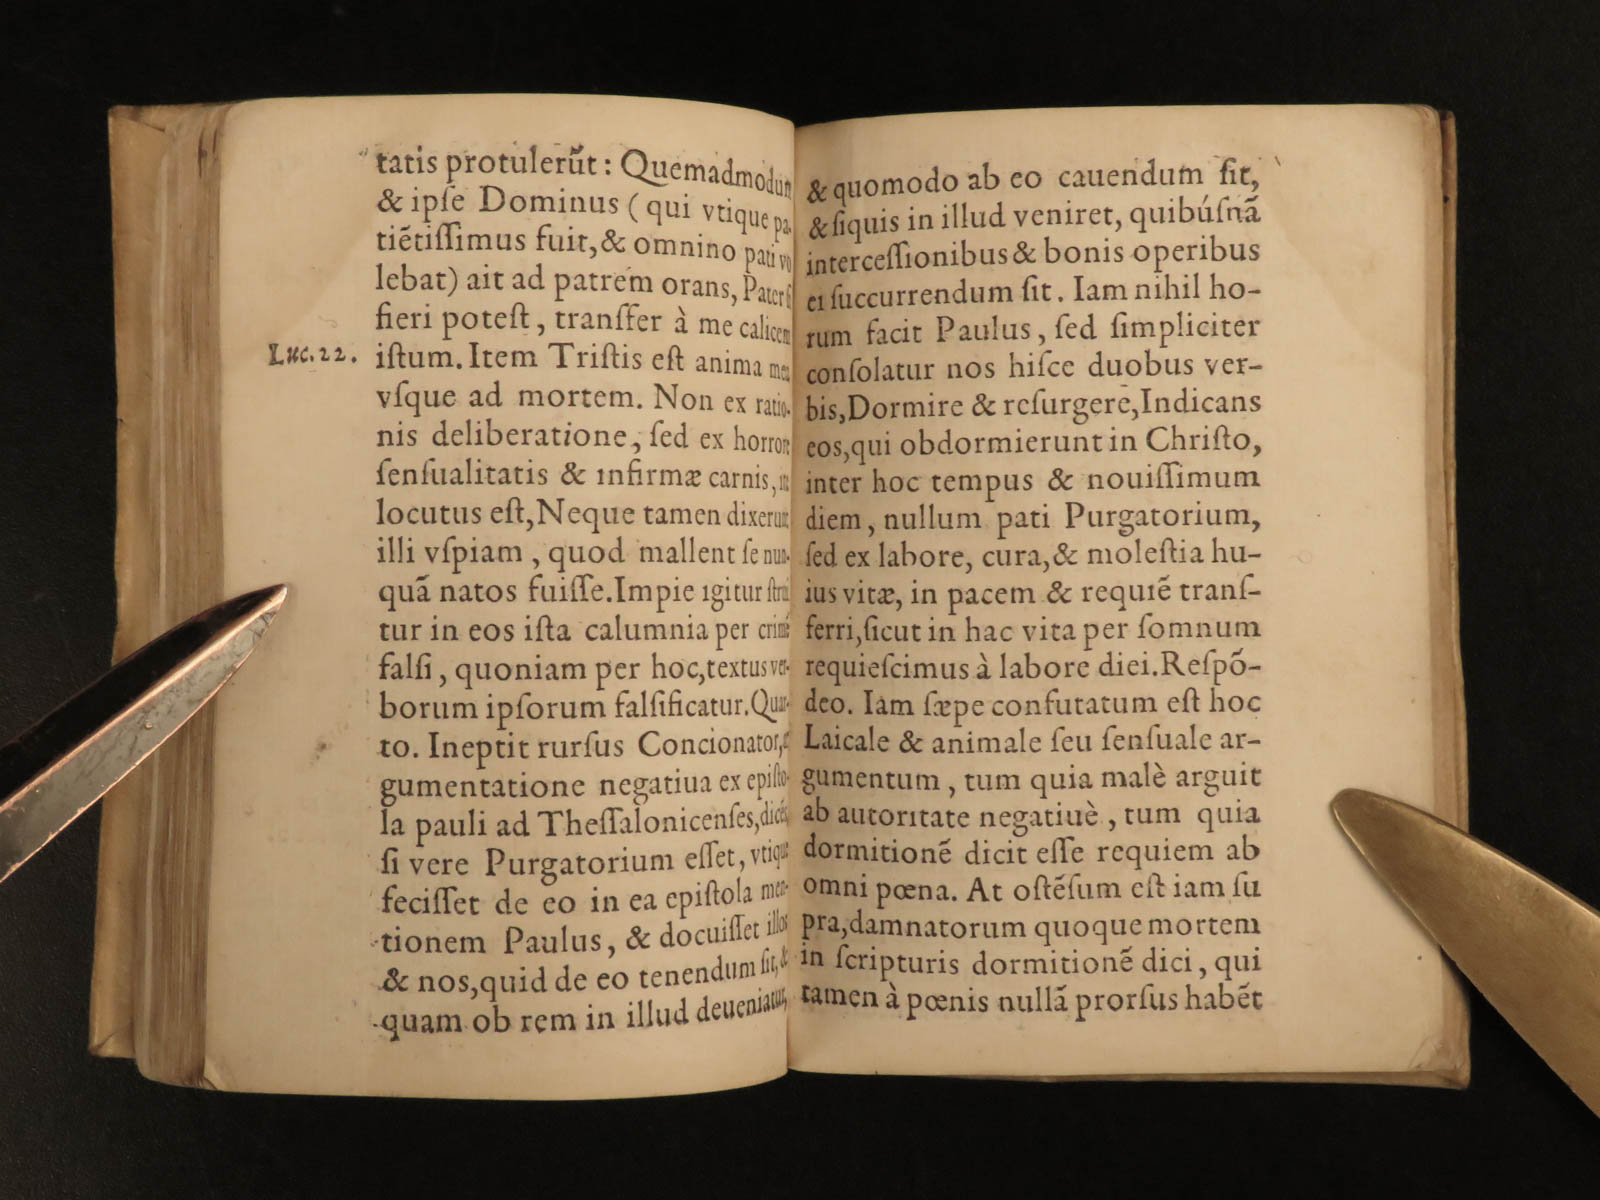 tatis protulerūt: Quemadmodum
& ipſe Dominus ( qui vtique pa-
tiētiſſimus fuit, & omnino pati vo
lebat) ait ad patrem orans, Pater ſi
fieri poteſt, tranſfer à me calicem
Luc.22.
iſtum. Item Triſtis eſt anima mea
vſque ad mortem. Non ex ratio-
nis deliberatione, ſed ex horrore
ſenſualitatis & infirmæ carnis,
locutus eſt, Neque tamen dixerunt
illi vſpiam, quod mallent ſe nun-
quā natos fuiſſe. Impie igitur ſtrui
tur in eos iſta calumnia per crimē
falſi, quoniam per hoc, textus ver-
borum ipſorum falſificatur. Quar-
to. Ineptit rurſus Concionator,
gumentatione negatiua ex epiſto-
la pauli ad Theſſalonicenſes, dicēs,
ſi vere Purgatorium eſſet, vtique
feciſſet de eo in ea epiſtola men-
tionem Paulus, & docuiſſet illos
& nos, quid de eo tenendum ſit, &
quam ob rem in illud deueniatur,
& quomodo ab eo cauendum ſit,
& ſiquis in illud veniret, quibúſnā
interceſſionibus & bonis operibus
ei ſuccurrendum ſit. Iam nihil ho-
rum facit Paulus, ſed ſimpliciter
conſolatur nos hiſce duobus ver-
bis, Dormire & reſurgere, Indicans
eos, qui obdormierunt in Chriſto,
inter hoc tempus & nouiſſimum
diem, nullum pati Purgatorium,
ſed ex labore, cura, & moleſtia hu-
ius vitæ, in pacem & requiē tranſ-
ferri, ſicut in hac vita per ſomnum
requieſcimus à labore diei. Reſpō-
deo. Iam ſæpe confutatum eſt hoc
Laicale & animale ſeu ſenſuale ar-
gumentum, tum quia malè arguit
ab autoritate negatiuè, tum quia
dormitionē dicit eſſe requiem ab
omni pœna. At oſtēſum eſt iam ſu
pra, damnatorum quoque mortem
in ſcripturis dormitionē dici, qui
tamen à pœnis nullā prorſus habēt